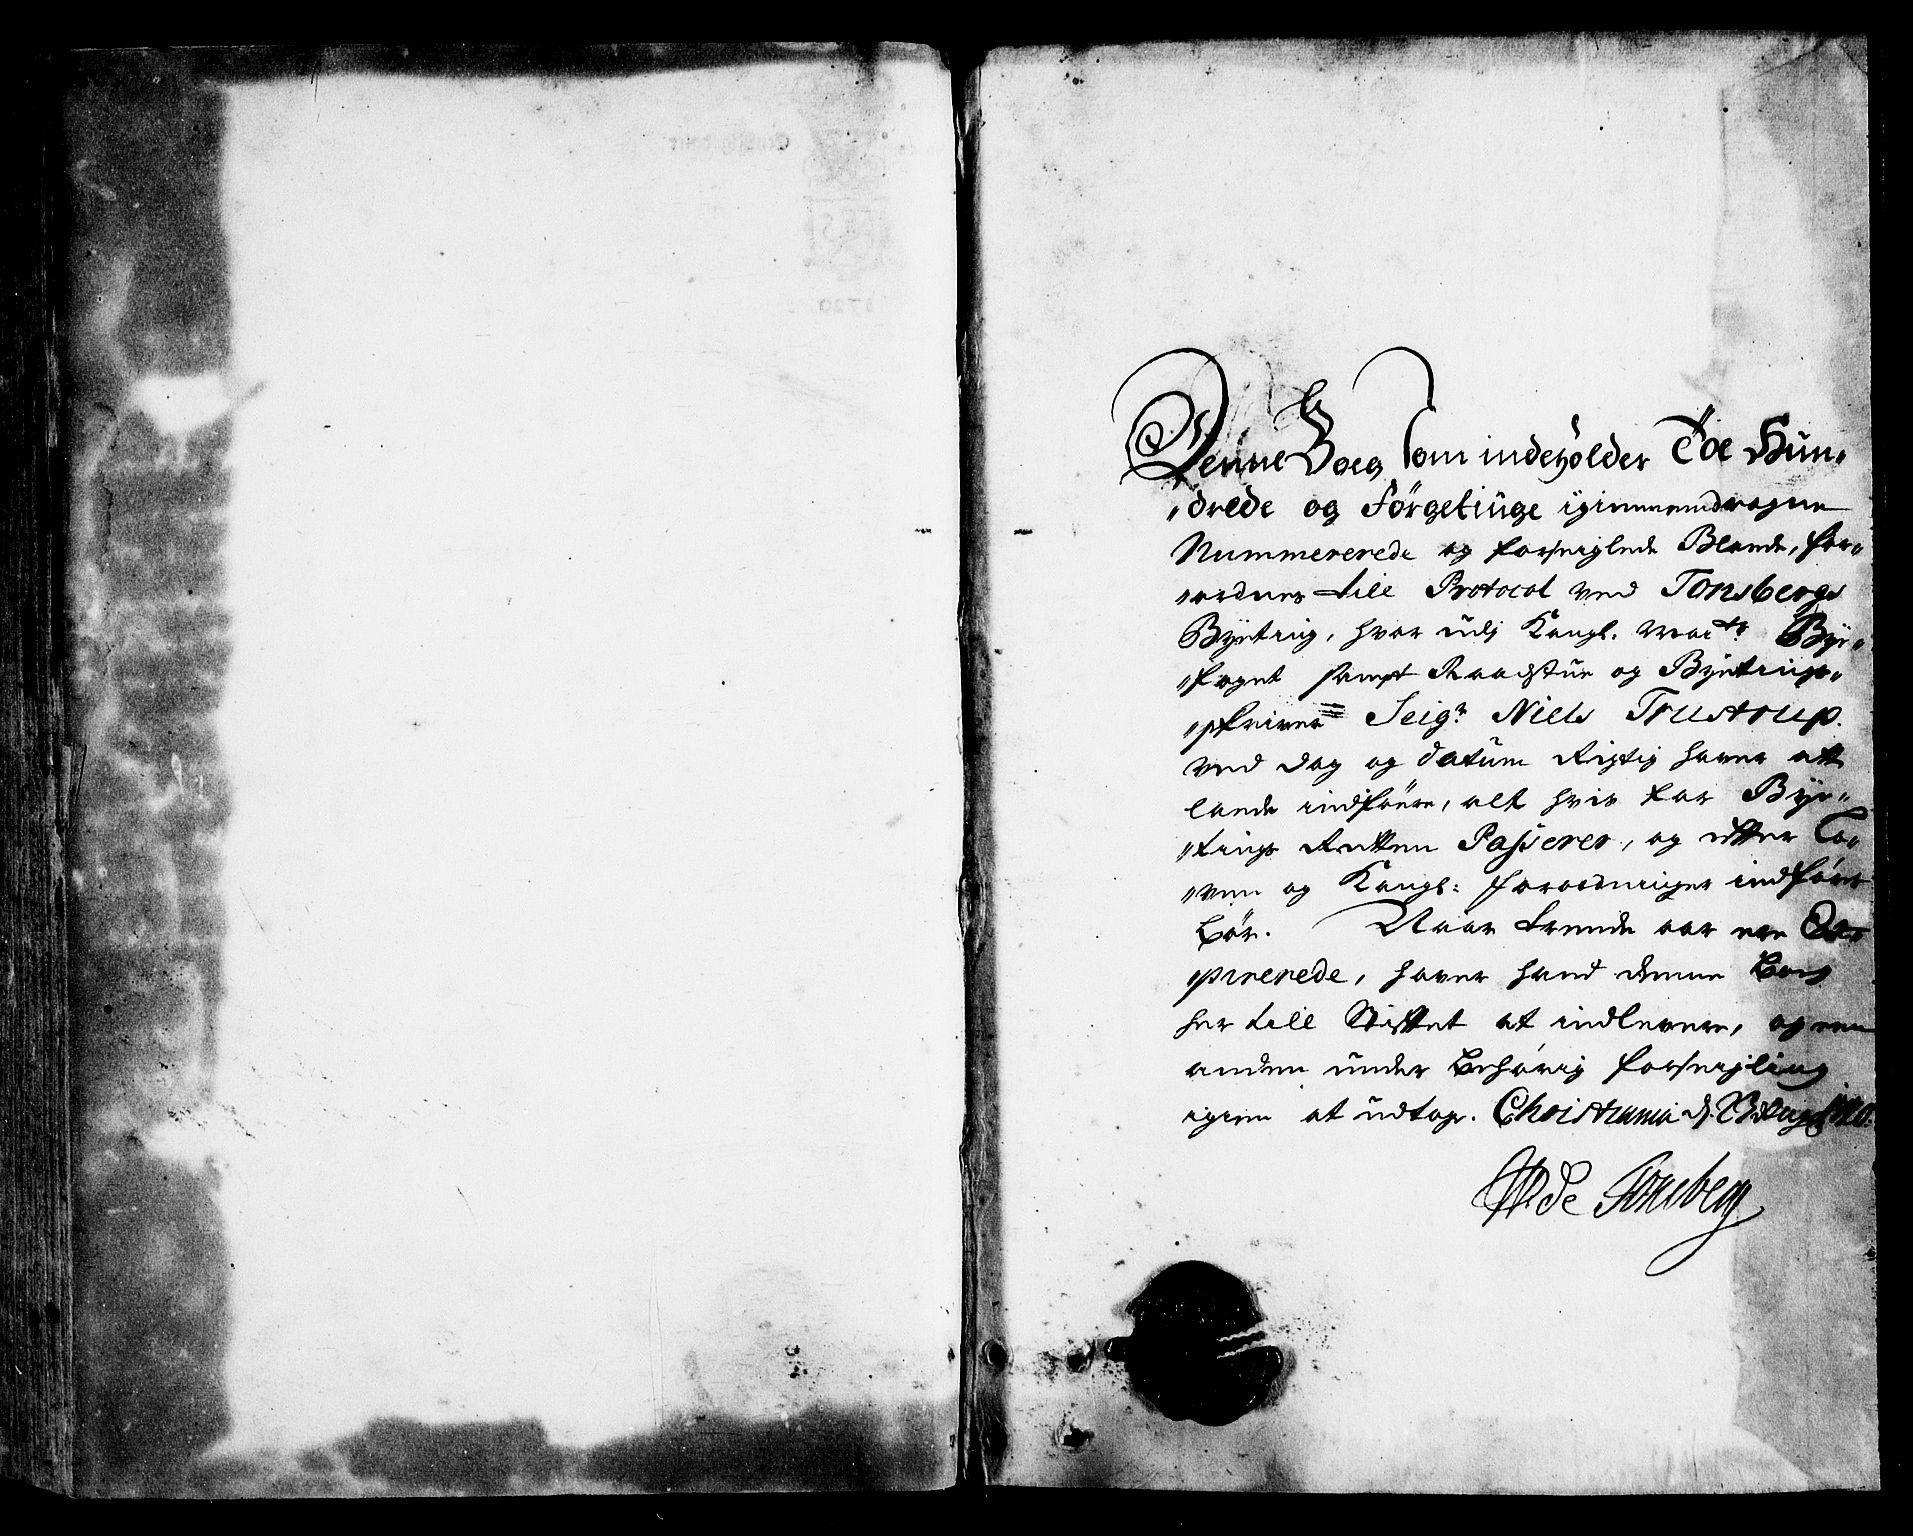 Denne Boeg som indeholder Toe Hun„
„drede og Førgetiuge igiennemdragne
Nummererede og forseiglede Blade, for„
„ordnes till Protocol ved Tonsbergs
Byeting, hvor udj Kongl. May:ts Bye„
„foget sampt Raadstue og Byeting„
„skriver Seig:r Niels Trustrup.
ved dag og datum Rigtig haver att
lade indføre, alt hvis for Bye„
„tings Retten Passerer, og efter Lo„
„ven og Kongl: forordninger indføres
bør. Naar trende aar ere Ex„
pirerede, haver hand denne Bog
her till Stiftet at indlevere, og een
anden under behørig forseigling
igien at udtage. Christiania d.
de Tonsberg